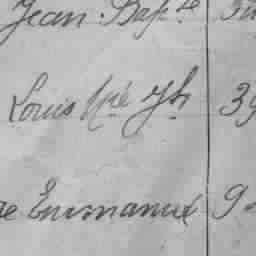 Jean Bapte
Louis Mie Jh 39
Emmanuel 9